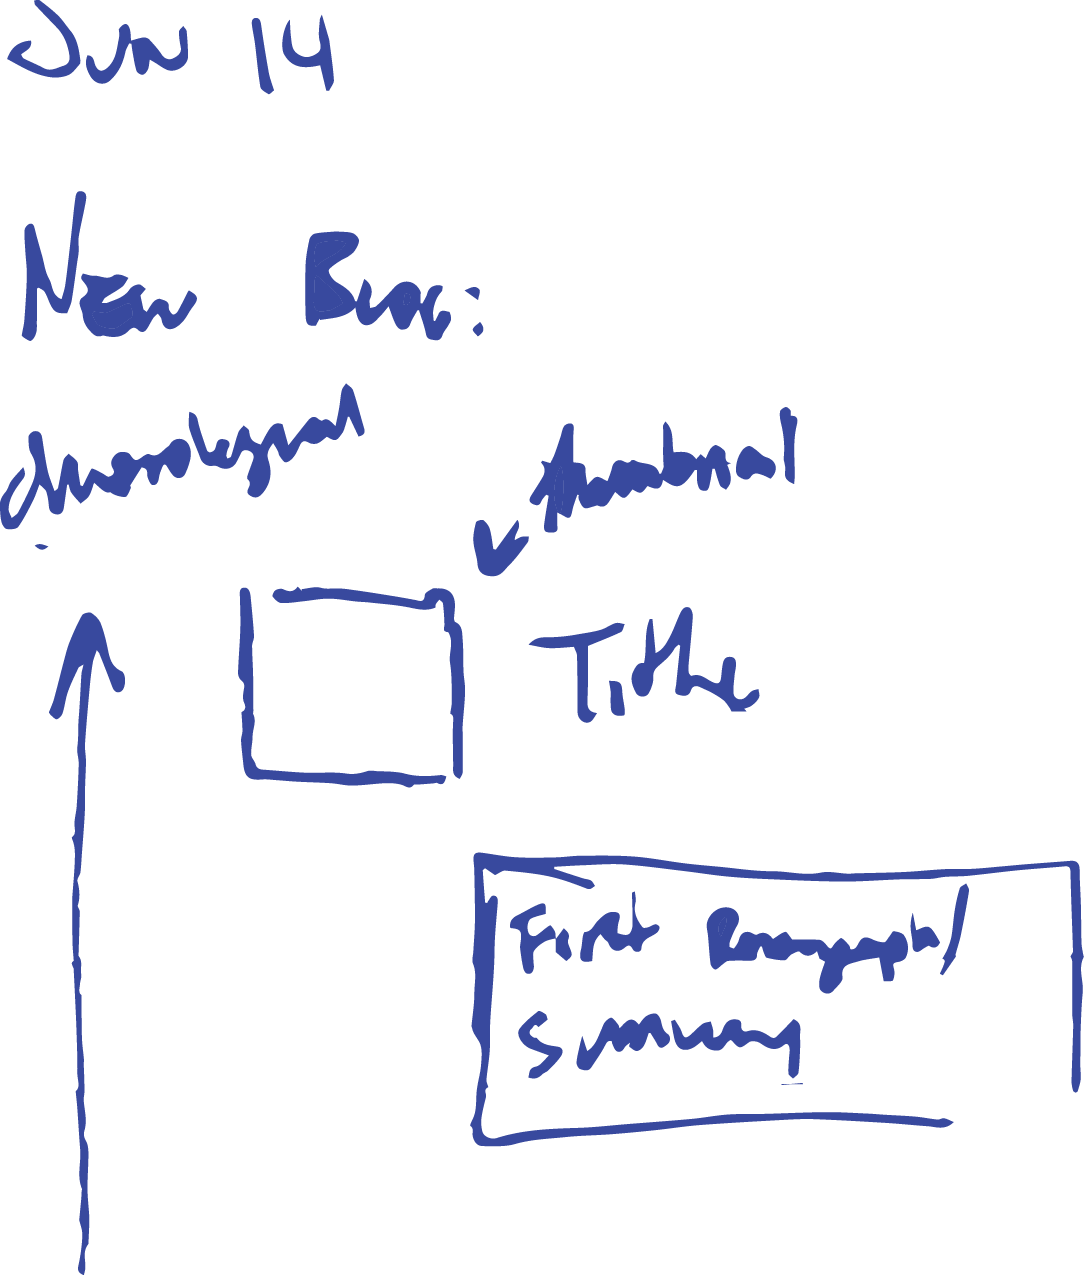 Jun 14
New Blog:
chronological
thumbnail
Title
First Paragraph/
Summary